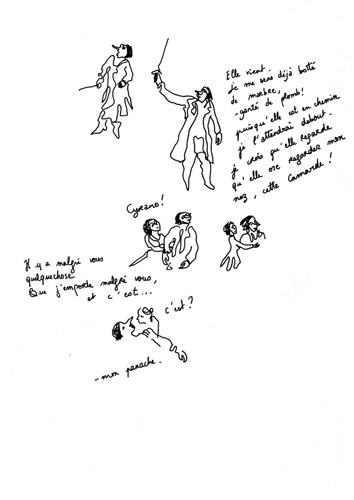 Elle vient.
Je me sens déjà botté
de marbre,
- ganté de plomb!
puisqu'elle est en chemin
je l'attendrai debout.
je crois qu'elle regarde
qu'elle ose regarder mon
nez, cette Camarde!
Cyrano!
Il y a malgré vous
quelquechose
Que j'emporte malgré vous,
et c'est...
c'est?
- mon panache.